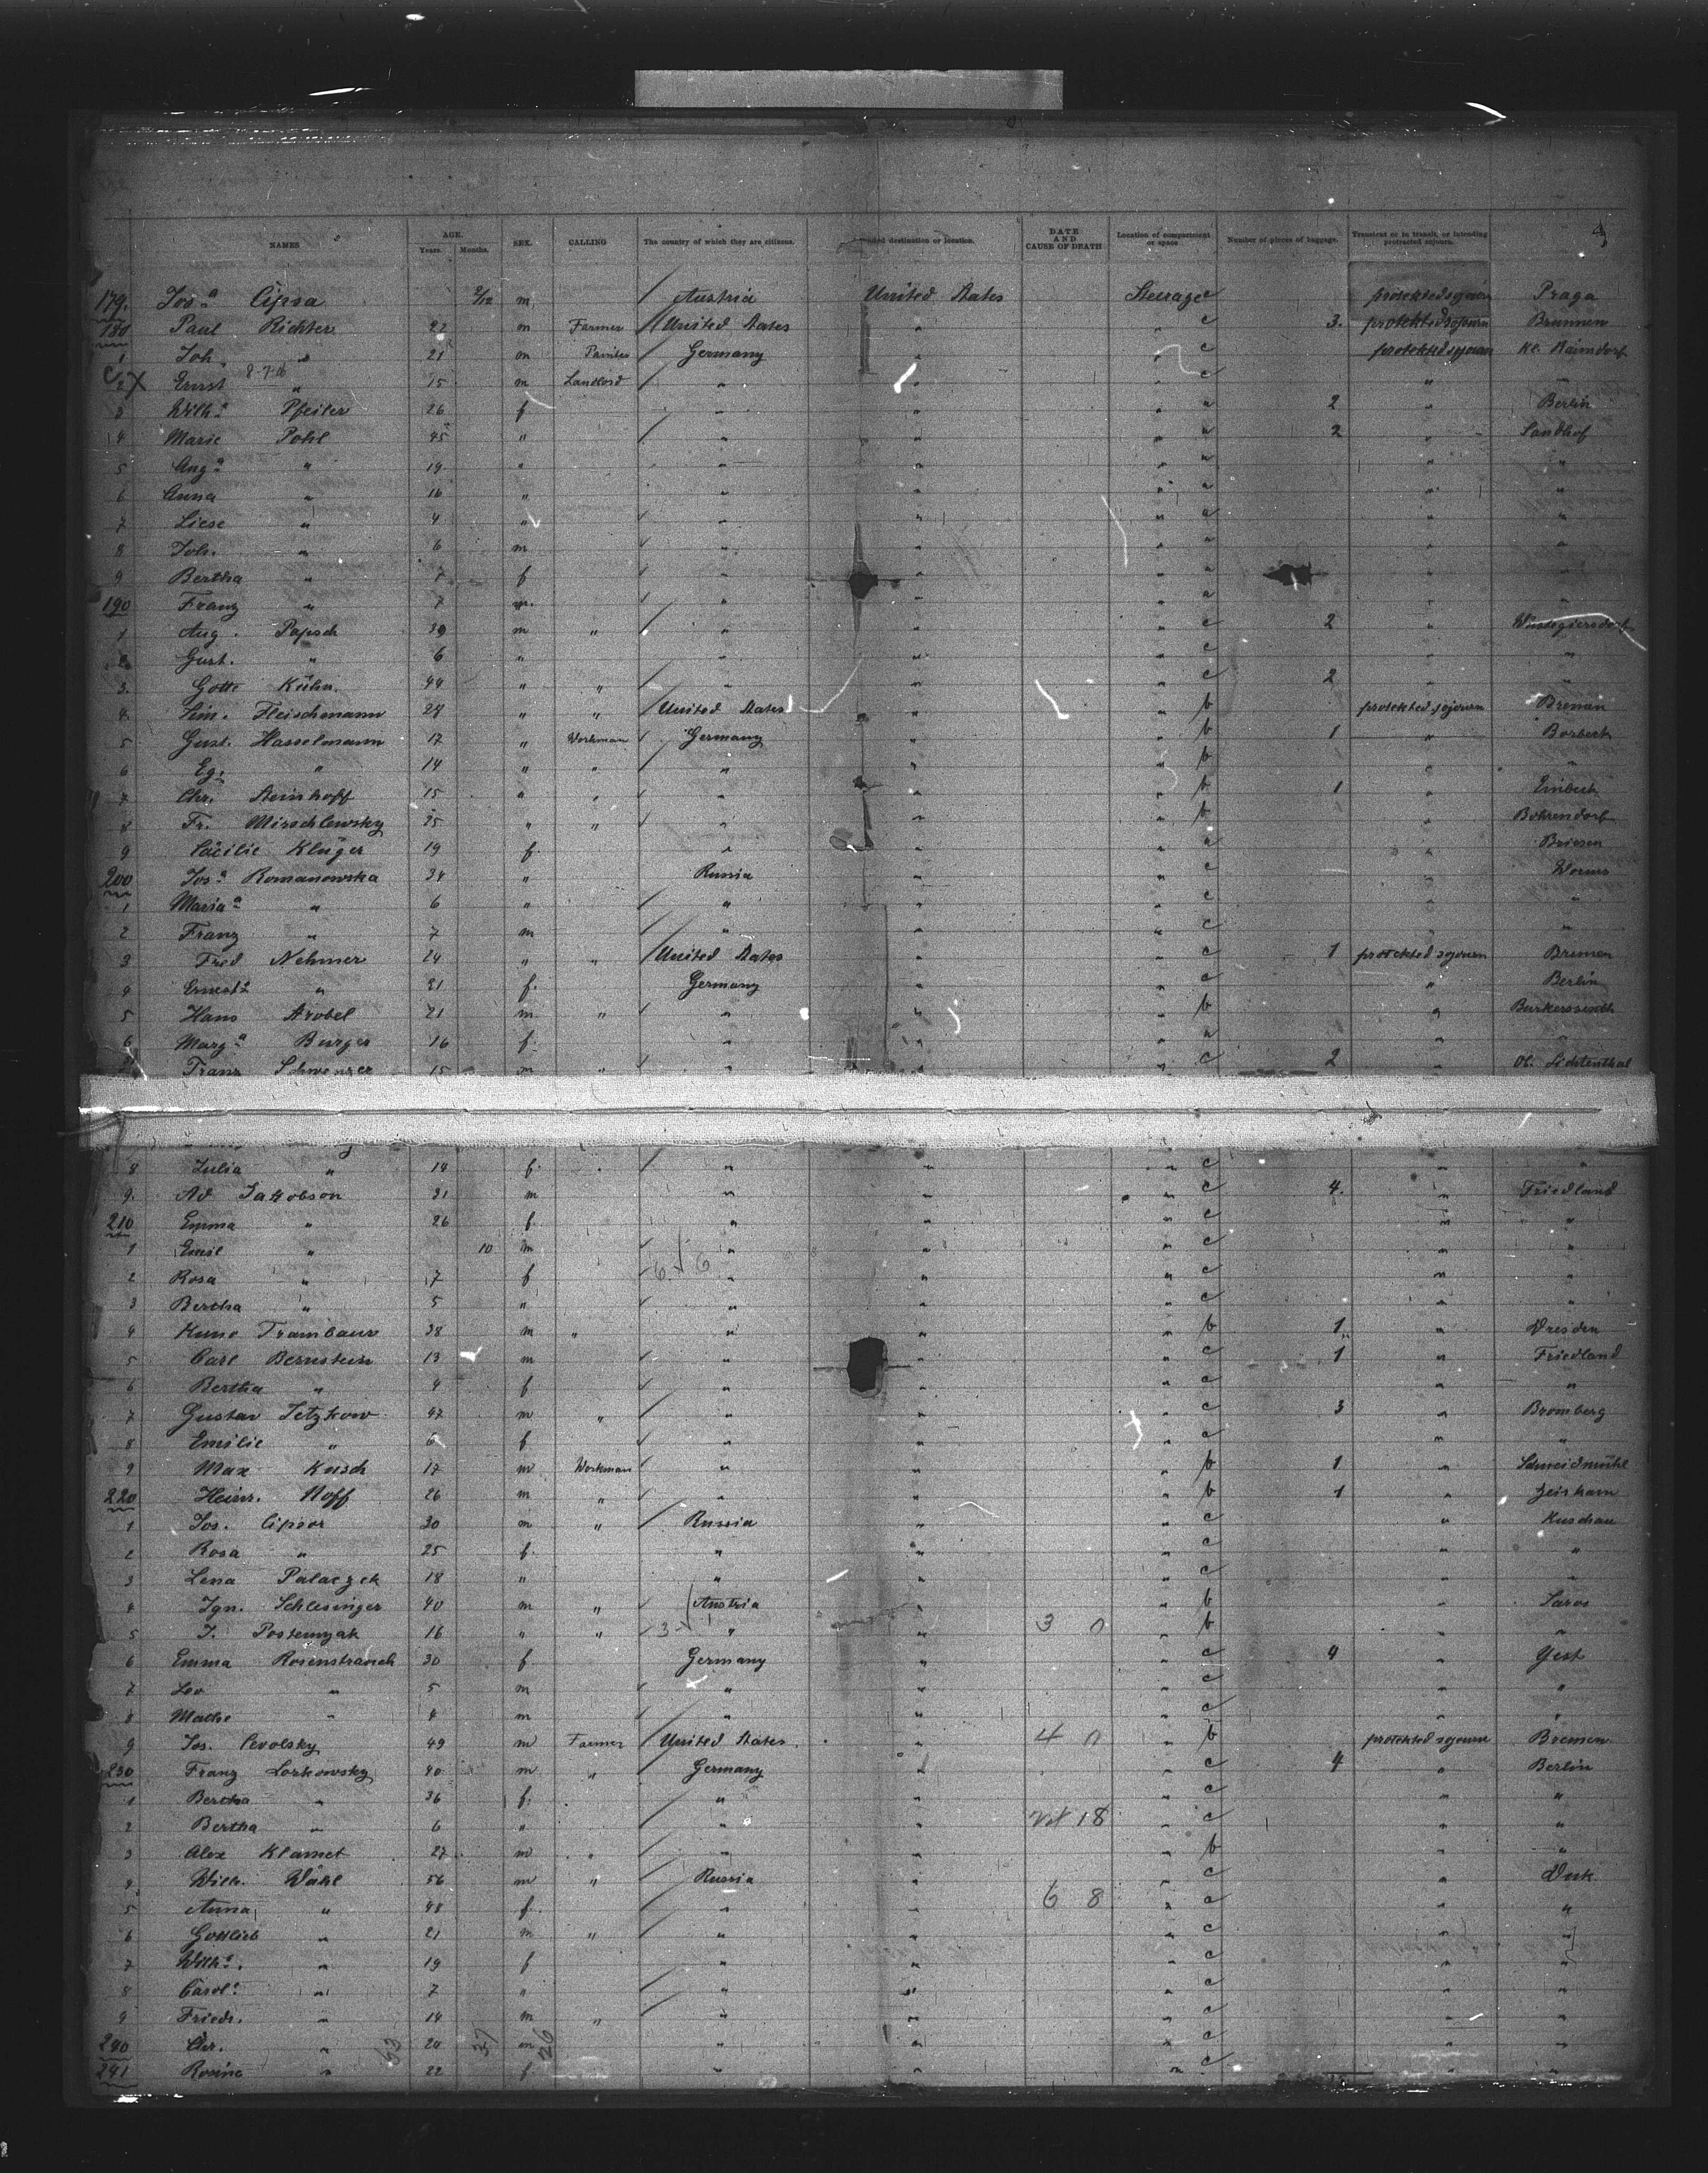 4
NAMES AGE. Years. Months. SEX. CALLING The country of which they are citizens. destination or location. DATE AND CAUSE OF DEATH Location of compartment or space Number of pieces of baggage. Transient or in transit, or intending protracted sojourn.
179. Jos.a Cipsa 2/12 m Austria United States Steerage c protekted sojourn Praga
180 Paul Richter 27 m Farmer United States " " c 3. protekted sojourn Brunnen
1 Joh. " 21 m Germany " " c protekted sojourn Kl.
2 Ernst 8-7-16 " 15 m Landlord " " " c "
3 Wilh.a Pfeiler 26 f " " " a 2 " Berlin
4 Marie Pohl 45 " " " " a 2 " Sandhof
5 Aug.a " 19 " " " " a " "
6 Anna " 16 " " " " a " "
7 Liese " 4 " " " " a " "
8 Joh. " 6 m " " " a " "
9 Bertha " 7 f " " " a " "
190 Franz " 7 m. " " " a " "
1 Aug. Papsch 39 m " " " " c 2 " Wüstegiersdorf
2 Gust. " 6 " " " " c " "
3. Gottl Kühn. 44 " " " " " c 2 " "
4. Sim. Fleischmann 27 " " United States " " b protekted sojourn Bremen
5 Gust. Hasselmann 17 " Workman Germany " " b 1 " Borbeck
6 Eg. " 14 " " " " " b " "
7 Chr. Steinhoff 15 " " " " " b 1 " Einbeck
8 Fr. Mirschlewsky 25 " " " " " b " Bohrendorf
9 Cäcilie Klüger 19 f. " " " a " Briesen
200 Jos.a Romanowska 34 " Russia " " c " Worms
1 Maria a " 6 " " " " c " "
2 Franz " 7 m " " " c " "
3 Fred Nehmer 24 " " United States " " c 1 protekted sojourn Bremen
4 Ernest.a " 21 f. Germany " " c " Berlin
5 Hans Strobel 21 m " " " " b "
6 Marg.a Burger 16 f. " " " a " "
Franz Schwenzer 15 m " " " " c 2 " Ol. Lichtenthal
8 Julia " 14 f. " " " c " "
9. Ad Jakobson 31 m " " " c 4. " Friedland
210 Emma " 26 f. " " " c " "
1 Emil " 10 m " " " c " "
2 Rosa " 7 f 6 6 " " " c " "
3 Bertha " 5 " " " " c " "
4 Kuno Trambaur 38 m " " " " b 1 " Dresden
5 Carl Bernstein 13 m " " " c 1 " Friedland
6 Bertha " 4 f " " " c " "
7 Gustav Tetzkow 47 m " " " " c 3 " Bromberg
8 Emilie " 6 f " " " c " "
9 Max Kusch 17 m Workman " " " b 1 " Schneidmühl
220 Heinr. Hoff 26 m " " " " b 1 " Zeiskam
1 Jos. Cipsor 30 m " Russia " " c " Kuschau
2 Rosa " 25 f. " " " c "
3 Lena Palaczek 18 " " " " c " "
4 Ign. Schlesinger 40 m " Austria " " b " Saros
5 J. Postemyak 16 " " 3 1 " " 3 0 " b " "
6 Emma Rosenstrauch 30 f. Germany " " c 4 " Gest
7 Leo " 5 m " " " c " "
8 Mathe " 4 m " " " c " "
9 Jos. Cevolsky 49 m Farmer United States " 4 0 " b protekted sojourn Bremen
230 Franz Lorkowsky 40 m " Germany " " c 4 " Berlin
1 Bertha " 36 f. " " " c " "
2 Bertha " 6 " " " 18 " c " "
3 Alex Klamet 27 m " " " " b " "
4 Wilh. Wahl 56 m " Russia " " c "
5 Anna " 48 f. " " 6 8 " c " "
6 Gottlieb " 21 m " " " " c " "
7 Wilh.a " 19 f " " " c " "
8 Carol.a " 7 " " " " c " "
9 Friedr. " 14 m " " " " c " "
240 Chr. " 63 24 37 m 26 " " " c " "
241 Rosine " 22 f. " " " c " "